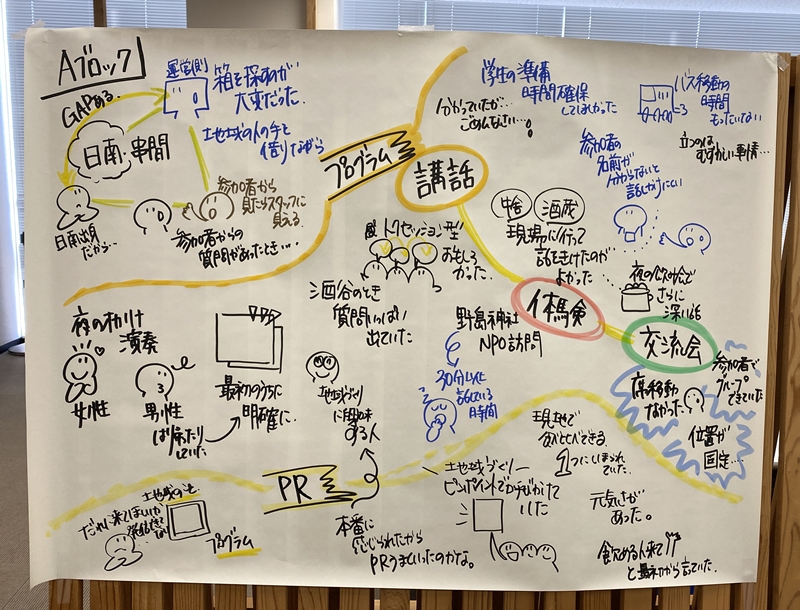 Aブロック
GAPある
運営側
箱を探すのが
大変だった。
地域の人の手を
借りながら
日南・串間
日南出身
だから…
参加者から
見たらスタッフに
見える
参加者からの
質問があったとき…
プログラム
講話
分かっていたが…
ごめんなさい…。
学生の準備
時間確保
してほしかった
バス移動の
時間
もったいない
立つのは
むずかしい事情…
参加者の
名前が
分からないと
話しかけにくい
酒蔵
現場に行って
話をきけたのが
よかった
トークセッション型
おもしろ
かった。
酒谷のとき
質問いっぱい
出ていた
体験
交流会
夜の
さらに
深い話
野島神社
NPO訪問
30分以上
話している
時間
席移動
なかった
参加者で
グループ
できていた
位置が
固定…
夜の
演奏
女性
男性
最初のうちに
明確に
地域づくり
に興味
ある人
PR
本番に
感じられたから
PRうまくいったのかな。
地域の
だれに来てほしいか
プログラム
現地で
食べくらべできる
1つにしぼられ
ていた。
地域づくり
ピンポイントで
元気さが
あった。
飲める人来て!!
と最初から言っていた。